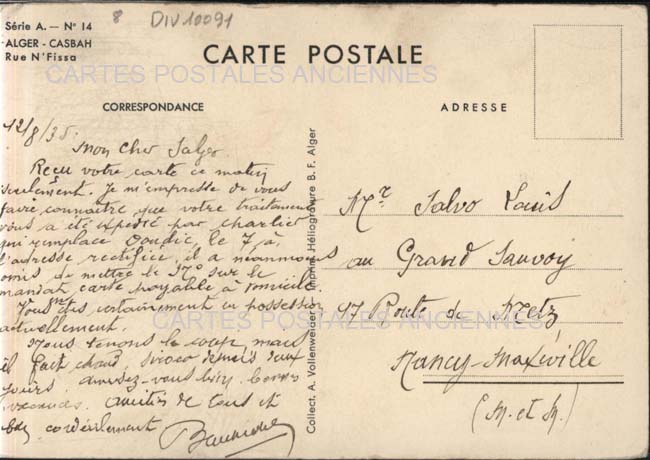 8 DIV10091
Série A. — N° 14
ALGER - CASBAH
Rue N'Fissa
CARTE POSTALE
CARTES POSTALES ANCIENNES
CORRESPONDANCE
ADRESSE
12/8/35.
Mon cher Salvo
Reçu votre carte ce matin
seulement. Je m'empresse de vous
faire connaître que votre traitement
vous a été expédié par Charlier
qui remplace Oondic, le 7 à
l'adresse rectifiée, il a néanmoins
omis de mettre le N° sur le
mandat carte payable à domicile.
Vous êtes certainement en possession
actuellement.
Nous tenons le coup, mais
il fait chaud, siroco depuis deux
jours. Amusez-vous bien, bonnes
vacances. Amitiés de tous et
bien cordialement
Collect. A. Vollenweider Imprim. Héliogravure B. F. Alger
Mr Salvo Louis
au Grand Sauvoy
97 Route de Metz
CARTES POSTALES ANCIENNES
Nancy-Maxéville
(M. et M.)